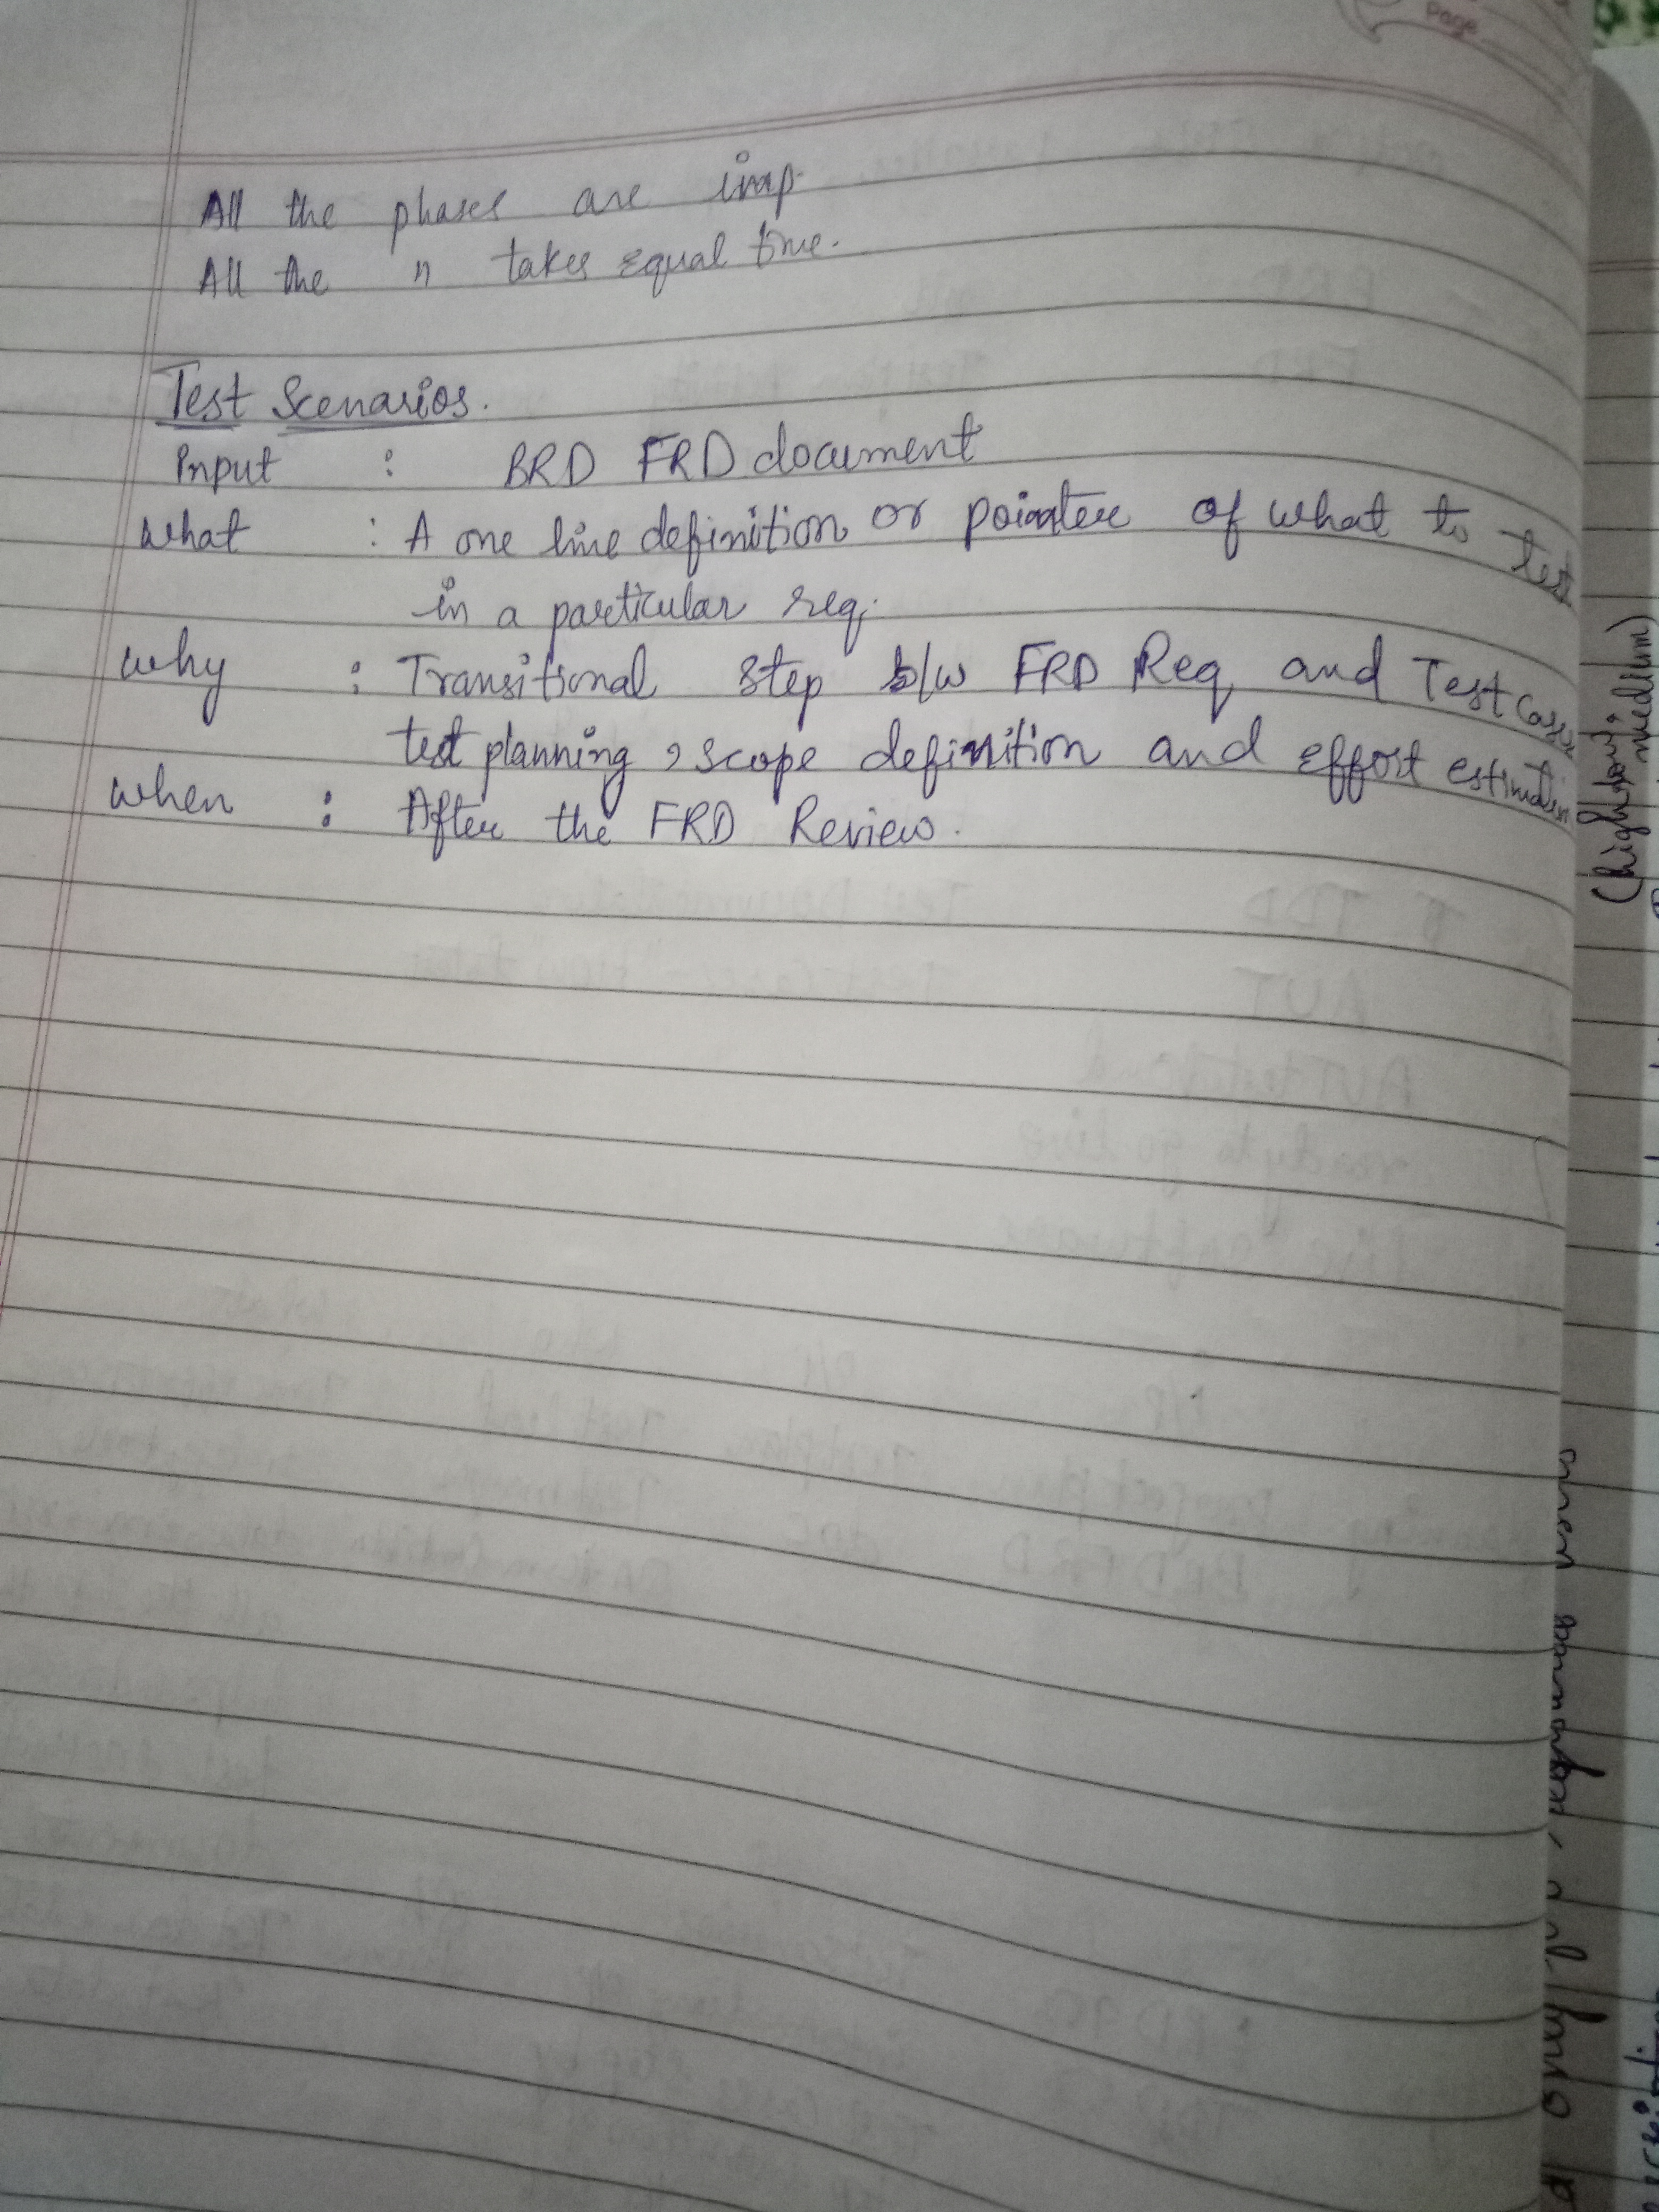 Page
All the phases are imp.
All the " takes equal time.
Test Scenarios.
Input : BRD FRD document
what : A one line definition or pointer of what to test
in a particular req.
why : Transitional step b/w FRD Req and Test Cases
test planning, scope definition and effort estimation
when : After the FRD Review.
(high, low, medium)
only